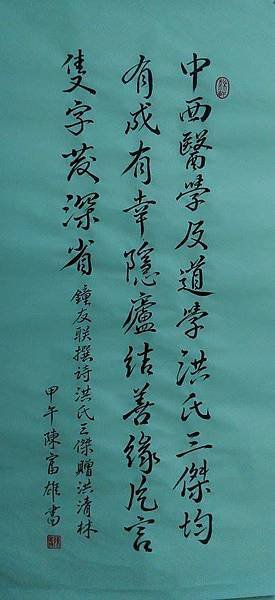 中西醫學及道學洪氏三傑均
有成有幸隱廬結善緣片言
隻字發深省
鐘友联撰诗洪氏三傑贈洪清林
甲午陳富雄書